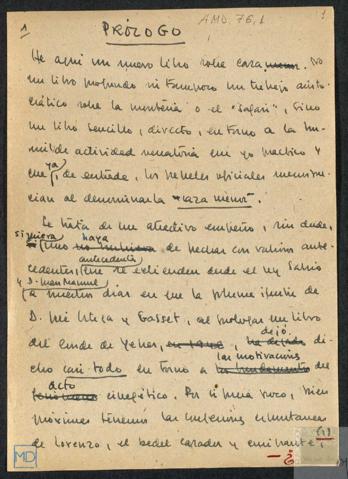 1
AMD. 76,1
1
PRÓLOGO
He aquí un nuevo libro sobre caza menor. No
un libro profundo ni tampoco un trabajo aristo-
crático sobre la montería o el "safari", sino
un libro sencillo, directo, en torno a la hu-
milde actividad venatoria que yo practico y
que ya, de entrada, los papeles oficiales menospre-
cian al denominarla "caza menor".
Se trata de un atractivo empeño, sin duda,
siquiera uno no haya de pechar con valiosos ante-
cedentes, antecedentes que se extienden desde el rey Sabio
y D. Juan Manuel
a nuestros días en que la pluma ilustre de
D. José Ortega y Gasset, al prologar un libro
del Conde de Yebes, dejó
dicho casi todo en torno a las motivaciones del
acto cinegético. Por si fuera poco, bien
próximas tenemos las historias
de Lorenzo, el bedel cazador y emigrante,
(1)
MD